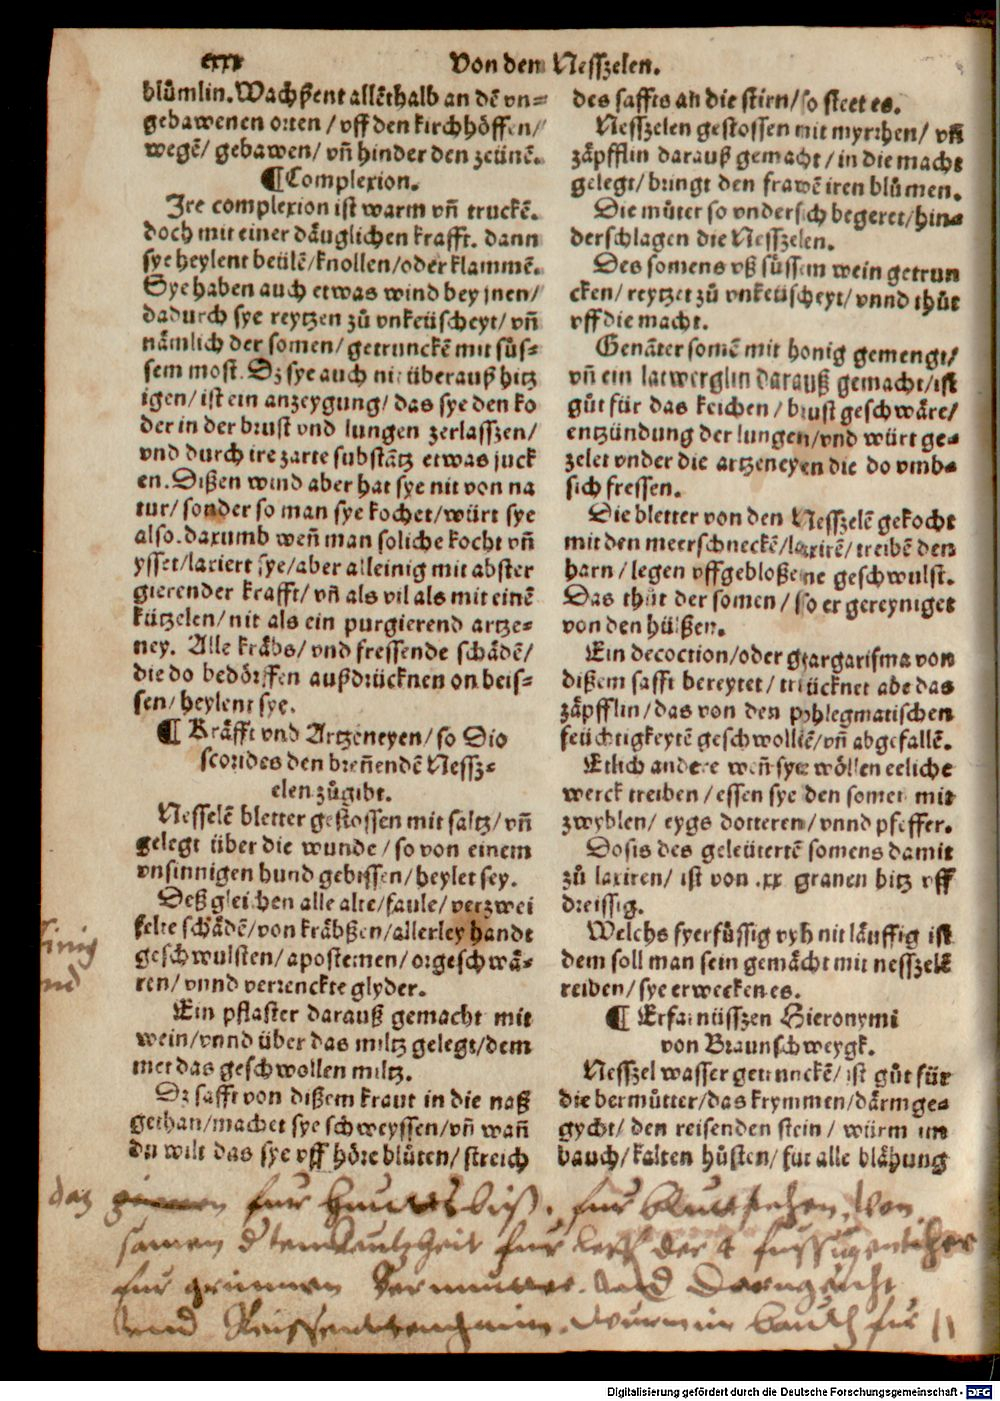 cxxx Von den Nesszelen.
blůmlin. Wachßent allēthalb an dē vn=
gebawenen orten / vff den kirchhöffen/
wegē/ gebawen/ vn̄ hinder den zeünē.
¶ Complexion.
Ire complexion ist warm vn̄ truckē.
doch mit einer däuglichen krafft. dann
sye heylent beülē/knollen/oder klammē.
Sye haben auch etwas wind bey jnen/
dadurch sye reytzen zů vnkeüscheyt/ vn̄
nämlich der somen/ getrunckē mit süs=
sem most. Dz sye auch nit überauß hitz
igen/ ist ein anzeygung/ das sye den ko
der in der brust vnd lungen zerlasszen/
vnd durch ire zarte substātz etwas juck
en. Dißen wind aber hat sye nit von na
tur/ sonder so man sye kochet/würt sye
also. darumb wen̄ man soliche kocht vn̄
ysset/laxiert sye/aber alleinig mit abster
gierender krafft/ vn̄ als vil als mit einē
kützelen/ nit als ein purgierend artze=
ney. Alle kräbs/ vnd fressende schädē/
die do bedörffen außdrücknen on beis=
sen/ heylent sye.
¶ Kräfft vnd Artzeneyen/ so Dio
scorides den bren̄endē Nessz=
elen zůgibt.
Nesselē bletter gestossen mit saltz/ vn̄
gelegt über die wunde / so von einem
vnsinnigen hund gebissen/ heylet sey.
Deß gleichen alle alte/ faule/ verzwei
felte schädē/ von kräbßen/ allerley handt
geschwulsten/ apostemen/ orgeschwä=
ren/ vnnd verrenckte glyder.
Ein pflaster darauß gemacht mit
wein/vnnd über das miltz gelegt/dem
met das geschwollen miltz.
Dz safft von dißem kraut in die naß
gethan/machet sye schweyssen/vn̄ wan̄
du wilt das sye vff höre blůten/ streich
des saffts an die stirn/ so steet es.
Nesszelen gestossen mit myrrhen/ vn̄
zäpfflin darauß gemacht / in die macht
gelegt/ bringt den frawē iren blůmen.
Die můter so vndersich begeret/ hin=
derschlagen die Nesszelen.
Des somens vß süssem wein getrun
cken/ reytzet zů vnkeüscheyt/ vnnd thůt
vff die macht.
Genāter somē mit honig gemengt/
vn̄ ein latwerglin darauß gemacht/ist
gůt für das keichen / brust geschwäre/
entzündung der lungen/vnd würt ge=
zelet vnder die artzeneyen die do vmb=
sich fressen.
Die bletter von den Nesszelē gekocht
mit den meerschneckē/laxirē/ treibē den
harn / legen vffgebloßene geschwulst.
Das thůt der somen / so er gereyniget
von den hülßen.
Ein decoction/oder gargarisma von
dißem safft bereytet/ trücknet abe das
zäpfflin/ das von den phlegmatischen
feüchtigkeytē geschwollē/vn̄ abgefallē.
Etlich andere wen̄ sye wöllen eeliche
werck treiben / essen sye den somen mit
zwyblen/ eygs dotteren/ vnnd pfeffer.
Dosis des geleütertē somens damit
zů laxiren/ ist von .xx granen bitz vff
dreissig.
Welchs fyerfüssig vyh nit läuffig ist
dem soll man sein gemächt mit nesszelē
reiben/ sye erwecken es.
¶ Erfarnüsszen Hieronymi
von Braunschweygk.
Nesszel wasser getrunckē/ ist gůt für
die bermůtter/das krymmen/därmge=
gycht/ den reisenden stein / würm im
bauch/ kalten hůsten/ für alle blähung
für Hundts biß. für blutstehen, Von
samen
für grimmen Bermutter. Und Darmgicht
Und wurm im bauch für